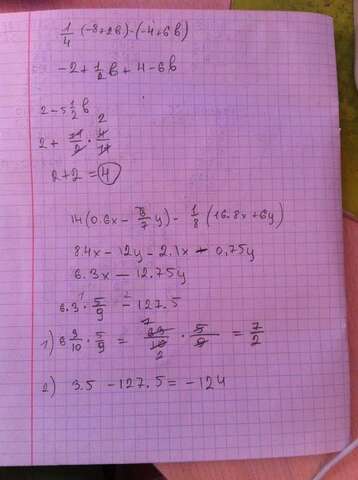 1/4 (-8+2b)-(-4+6b)
-2+1/2b+4-6b
2-5 1/2b
2+ 11/2 · 4/11 2
2+2=4
14(0.6x-6/7y)-1/8(16.8x+6y)
8.4x-12y-2.1x-0.75y
6.3x-12.75y
6.3·5/9-127.5
1 2
1) 6 3/10·5/9=63/10·5/9=7/2
7
2
2) 3.5-127.5=-124